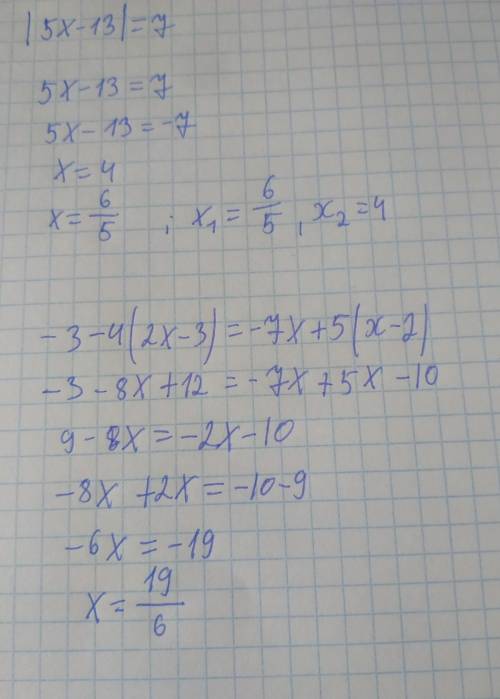 |5x-13|=7
5x-13=7
5x-13=-7
x=4
x=6/5 ; x₁=6/5, x₂=4
-3-4(2x-3)=-7x+5(x-2)
-3-8x+12=-7x+5x-10
9-8x=-2x-10
-8x+2x=-10-9
-6x=-19
x=19/6